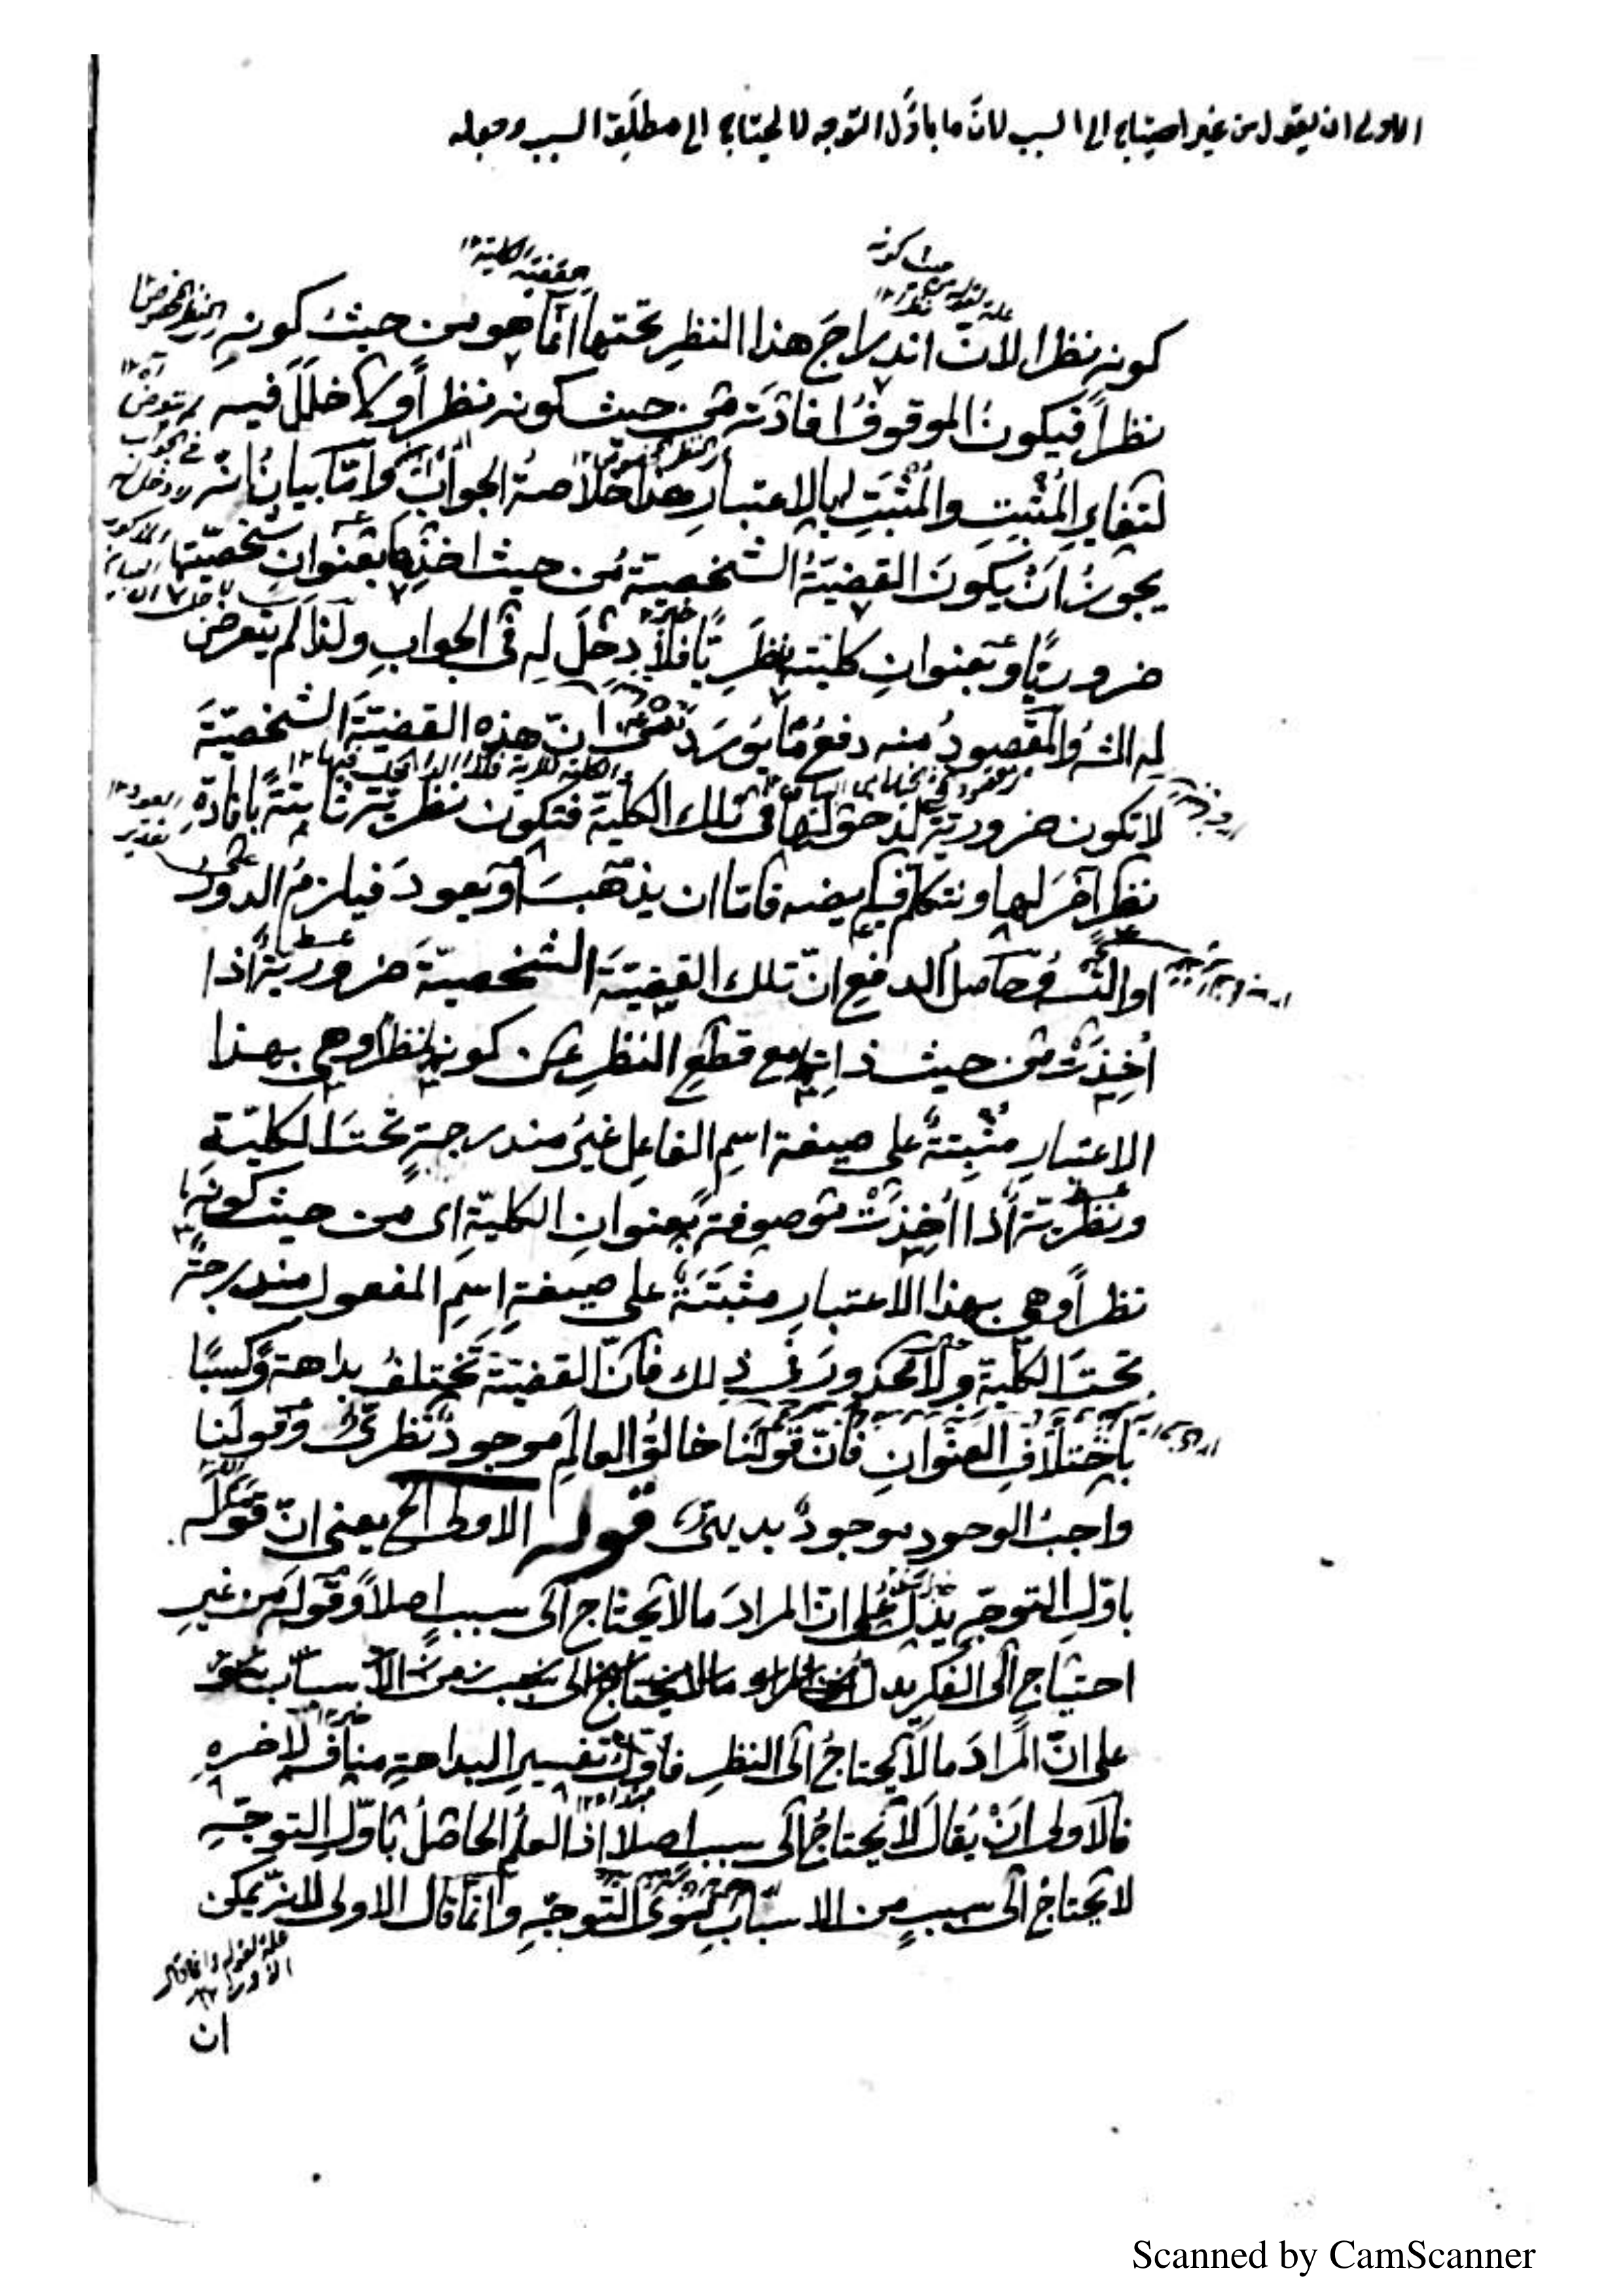 الاولى ان يقول من غير احتياج الى السبب لانّ ما باوّل التوجه لا يحتاج الى مطلق السبب وجعله
حيث كونه
القضية الكلية ١٢
كونه نظرا لانّ اندراجَ هذا النظرِ تحتها انّما هو من حيث كونهِ
نظراً فيكون الموقوفُ افادتَه من حيث كونه نظراً ولا خللَ فيه
لتغايرِ المُثبِتِ والمُثبَتِ بالاعتبارِ هذا خلاصةُ الجوابِ وامّا بيانُ انّه
يجوزُ اَنْ يكونَ القضيّةُ الشخصيّة من حيث اخذِها بعنوانِ شخصيّتها
ضروريًّا وبعنوانِ كليّتها نظريًّا فلا دخلَ له فى الجوابِ ولذا لم يتعرض
له الشـ والمقصودُ منه دفعُ ما يورَد انّ هذه القضيّةَ الشخصيّةَ
لا تكون ضروريّة لدخولها فى تلك الكليّة فتكون نظريّة ثابتةً بافادةِ
نظرٍ آخرَ لها ونتكلم فيه فامّا ان يذهبَ او يعودَ فيلزمُ الدور
او التسـ وحاصلُ الدفعِ انّ تلك القضيّةَ الشخصيّةَ ضروريّةٌ اذا
اُخِذَتْ من حيث ذاتِها مع قطعِ النظرِ عن كونها نظرا وهى بهذا
الاعتبارِ مثبِتةٌ على صيغة اسمِ الفاعلِ غيرُ مندرجةٍ تحتَ الكليّة
ونظريّة اذا اُخِذَتْ موصوفةً بعنوانِ الكليّةِ اى من حيث كونها
نظراً وهى بهذا الاعتبارِ مثبَتَةٌ على صيغةِ اسمِ المفعول مندرجةٌ
تحتَ الكليّةِ ولا محذورَ فى ذلك فانّ القضيّةَ تختلفُ بداهةً وكسبًا
باختلافِ العنوانِ فانّ قولَنا خالقُ العالَمِ موجودٌ نظرىٌّ وقولَنا
واجبُ الوجود موجودٌ بديهىٌّ قوله الاولى الخ يعنى انّ قولَه
باوّلِ التوجّهِ يدلّ على انّ المرادَ ما لا يحتاج الى سببٍ اصلاً وقولَه من غيرِ
احتياجٍ الى الفكرِ يدل
على انّ المرادَ ما لا يحتاجُ الى النظرِ فاوّلُ تفسيرِ البداهةِ منافٍ لآخرهِ
فالاولى اَنْ يُقالَ لا يحتاجُ الى سببٍ اصلا اذ العلمُ الحاصلُ باوّلِ التوجّهِ
لا يحتاج الى سببٍ من الاسبابِ سوى التوجّهِ وانّما قال الاولى لانّه يمكن
علة لقوله وانما قال
الاولى ١٢
ان
Scanned by CamScanner